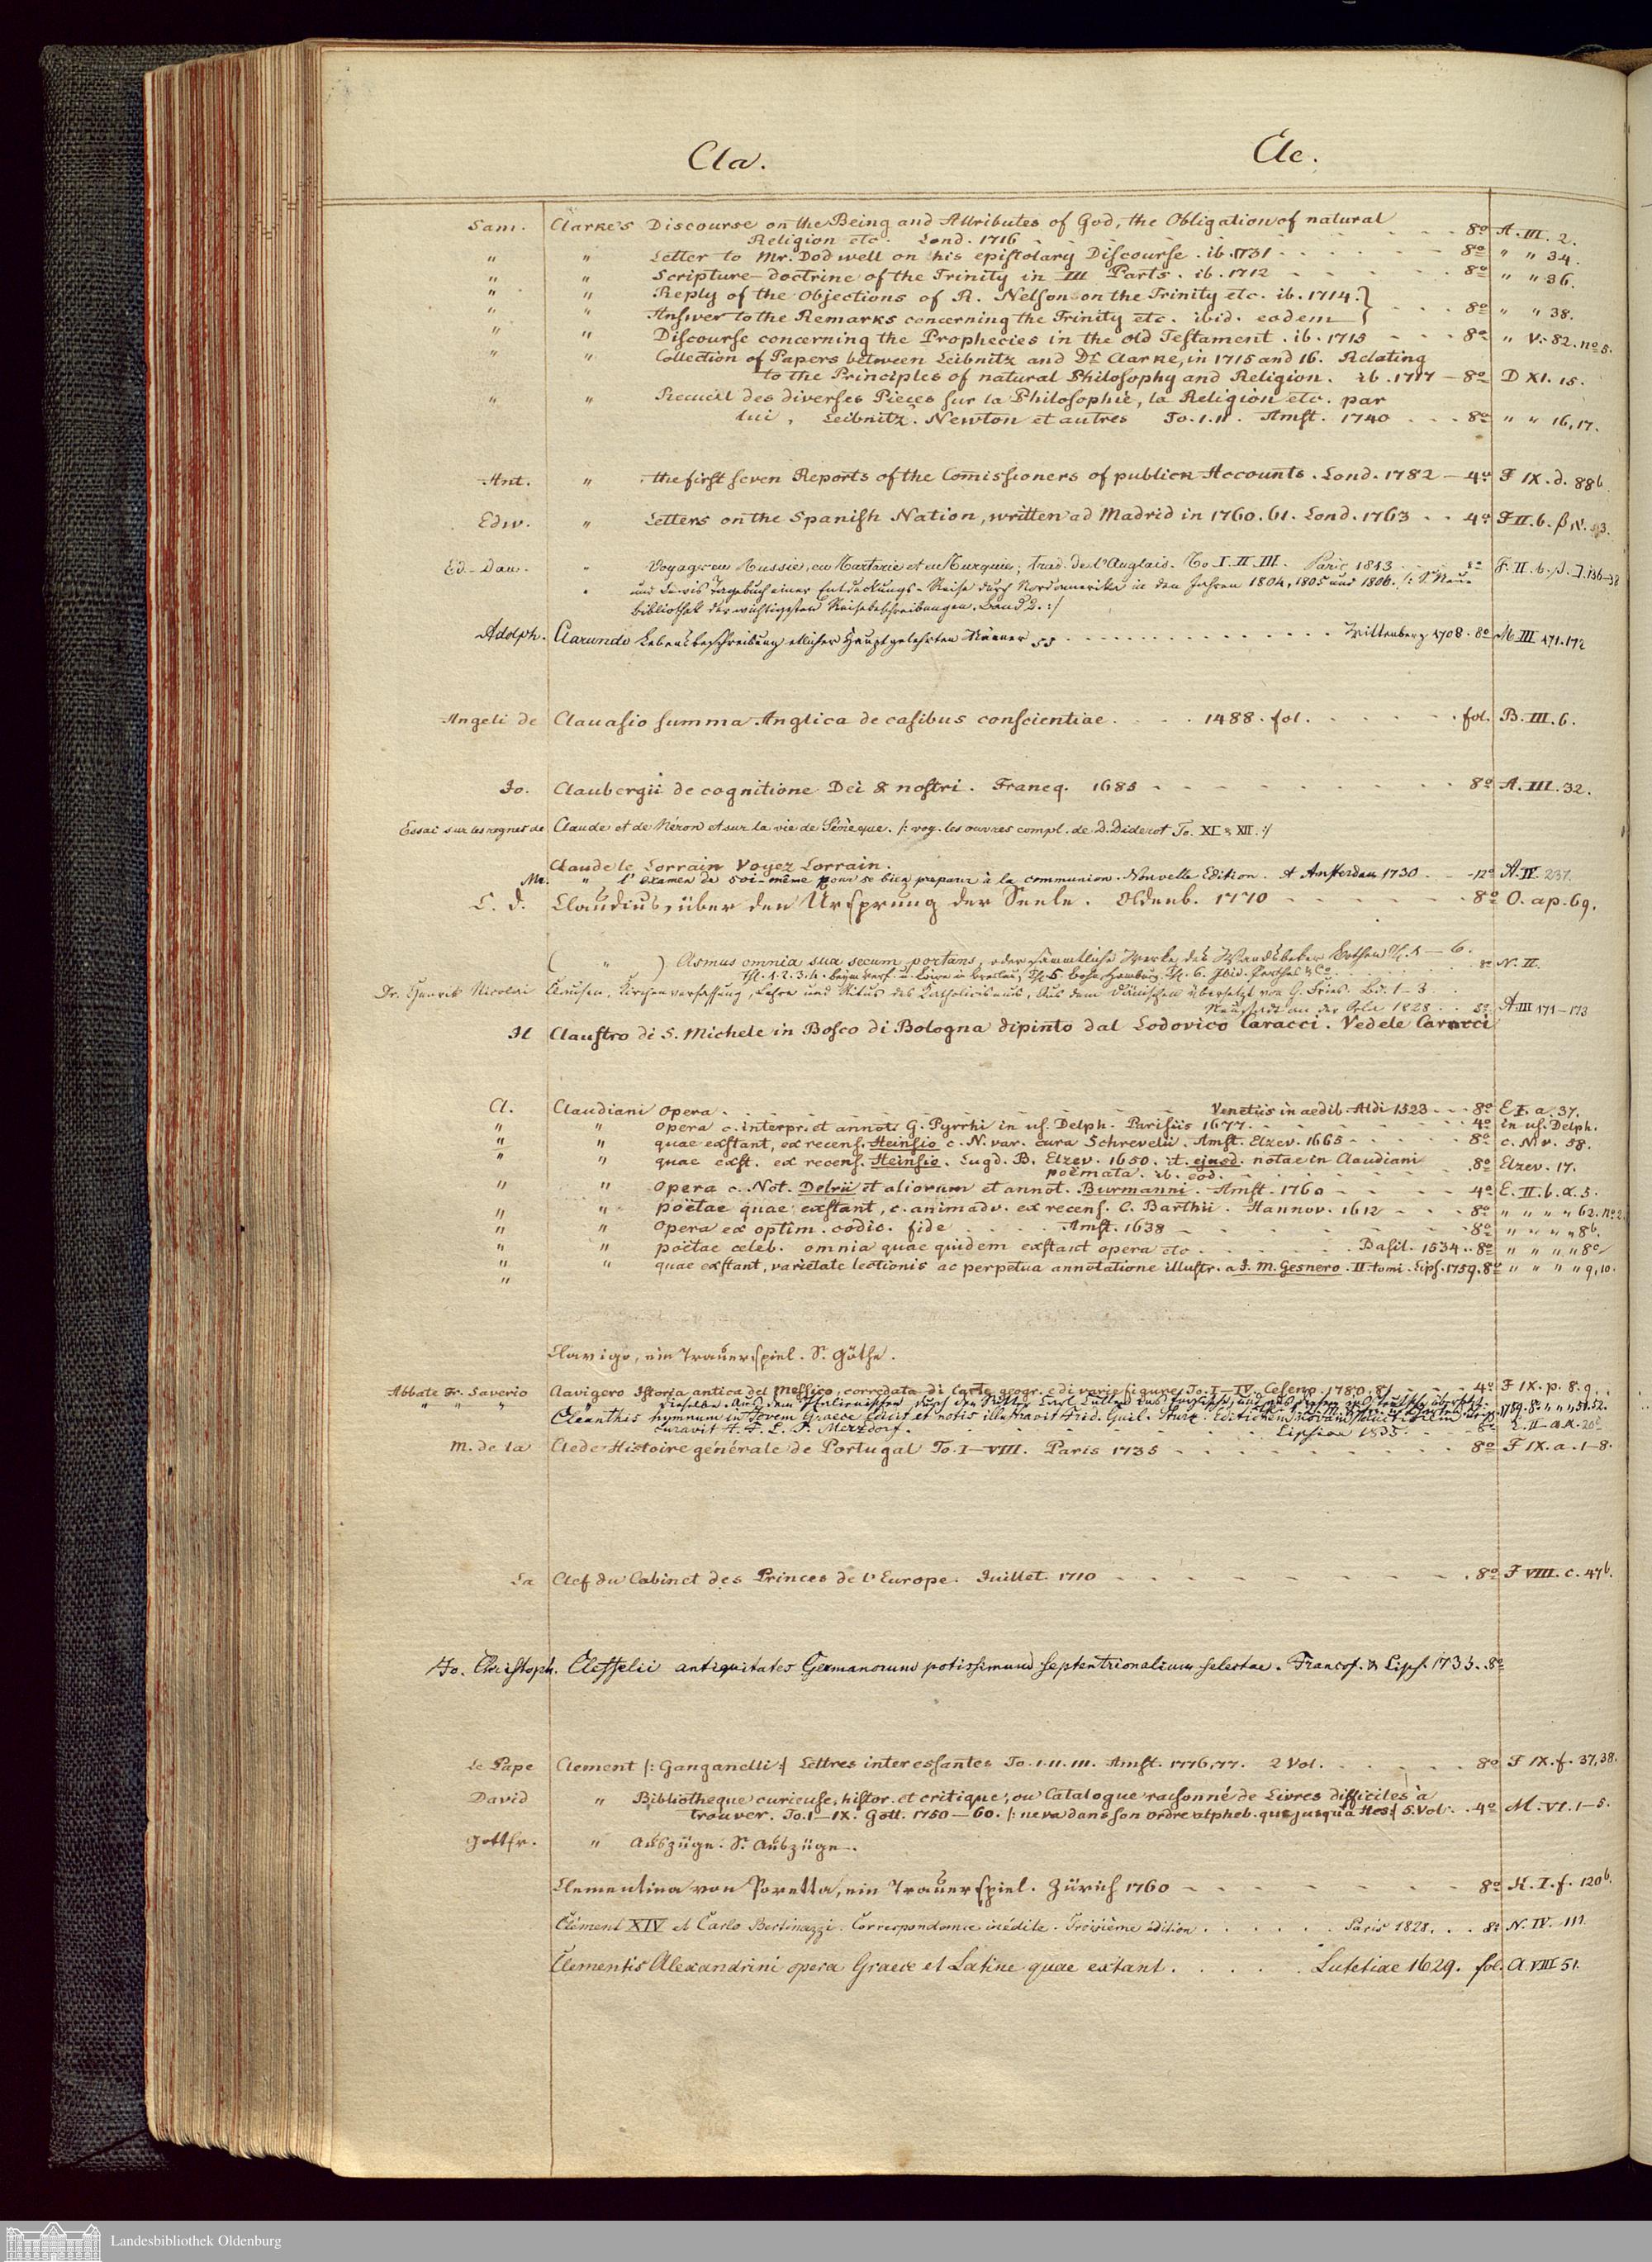 Cla. Cle.
Sam. Clarke's Discourse on the Being and Attributes of God, the Obligation of natural
Religion etc. Lond. 1716 - - - - 8o A. III. 2.
" " Letter to Mr. Dodwell on his epistolary Discourse. ib. 1731 - - - - 8o " " 34.
" " Scripture-doctrine of the Trinity in III Parts. ib. 1712 - - - - 8o " " 36.
" " Reply of the Objections of R. Nelson on the Trinity etc. ib. 1714. }
" " Answer to the Remarks concerning the Trinity etc. ibid. eodem } - - - 8o " " 38.
" " Discourse concerning the Prophecies in the old Testament. ib. 1713 - - - 8o " V. 82. no 5.
" " Collection of Papers between Leibnitz and Dr. Clarke, in 1715 and 16. Relating
to the Principles of natural Philosophy and Religion. ib. 1717 — 8o D XI. 15.
" " Recueil des diverses Pieces sur la Philosophie, la Religion etc. par
lui, Leibnitz. Newton et autres To. I. II. Amst. 1740 - - - 8o " " 16, 17.
Ant. " the first seven Reports of the Comissioners of publick Accounts. Lond. 1782 — 4o F IX. d. 88b.
Edw. " Letters on the Spanish Nation, written ad Madrid in 1760. 61. Lond. 1763 - - 4o F II. b.
Ed. Dan. " Voyages en Russie, en Tartarie et en Turquie; trad. de l'Anglais. To. I. II. III. Paris 1813 8o F. II. b. 136-38
" und Tagebuch einer Entdeckungs-Reise durch Nordamerika in den Jahren 1804, 1805 und 1806. /: S. Neue
Bibliothek der wichtigsten Reisebeschreibungen. Band 2. :/
Adolph. Clarundo Lebensbeschreibung etlicher Hauptgelehrten Männer . . . . Wittenberg 1708. 8o M III 171. 172
Angeli de Clavasio summa Anglica de casibus conscientiae . . . . 1488. fol. . . . . fol. B. III. 6.
Jo. Claubergii de cognitione Dei & nostri. Franeq. 1685 - - - - 8o A. III. 32.
Essai sur les regnes de Claude et de Néron et sur la vie de Sénèque. /: voy. les ouvres compl. de D. Diderot To. XI & XII. :/
Claude le Lorrain Voyez Lorrain.
Mr. " l'examen de soi-même pour se bien preparer à la communion. Nouvelle Edition. A Amsterdam 1730 . . -12o A. IV. 237.
C. d. Claudius, über den Ursprung der Seele. Oldenb. 1770 - - - - 8o O. ap. 69.
( " ) Asmus omnia sua secum portans, oder sämmtliche Werke des Wandsbeker Bothen Th. 1 — 6.
Th. 1. 2. 3. 4. beym Verf. u. Löwe in Breslau, Th. 5. Hamburg, Th. 6. Ibid. Perthes & Co. . . . 8o N. II.
Dr. Henrik Nicolai Clausen, Kirchenverfassung, Lehre und Ritus des Katholicismus, Aus dem Dänischen übersetzt von G. Fries. Bd. 1-3.
Neustadt an der Orla 1828 . . 8o A. III 171-173
Il Claustro di S. Michele in Bosco di Bologna dipinto dal Lodovico Caracci. Vedele Caracci
Cl. Claudiani Opera . . . . Venetiis in aedib. Aldi 1523 - - - 8o E I. a. 37.
" " opera c. interpr. et annot. G. Pyrrhi in us. Delph. Parisiis 1677. - - - 4o in us. Delph.
" " quae exstant, ex recens. Heinsio c. N. var. cura Schrevelii. Amst. Elzev. 1665 - - - 8o c. N. v. 58.
" " quae exst. ex recens. Heinsio. Lugd. B. Elzev. 1650. it. ejusd. notae in Claudiani
poëmata. ib. eod. 8o Elzev. 17.
" " Opera c. Not. Delrii et aliorum et annot. Burmanni. Amst. 1760 - - - - 4o E. II. b. α. 5.
" " poëtae quae exstant, c. animadv. ex recens. C. Barthii. Hannov. 1612 - - - 8o " " " " 62. no 2.
" " Opera ex optim. codic. fide . . . . Amst. 1638 - - - - 8o " " " " 8b.
" " poëtae celeb. omnia quae quidem exstant opera etc . . . . Basil. 1534 . . 8o " " " " 8c
" " quae exstant, varietate lectionis ac perpetua annotatione illustr. a J. M. Gesnero. II tomi. Lips. 1759. 8o " " " " 9, 10.
"
Clavigo, ein Trauerspiel. S. Göthe.
Abbate Fr. Saverio Clavigero Istoria antica del Messico, corredata di Carte geogr. e di varie figure. To. I-IV. Cesena. 1780. 81 4o F IX. p. 8. 9.
" " " " Aus dem Italienischen durch den Ritter Carl Cullen ins Englische, und aus diesem ins Teutsche übersetzt. 1789. 8o " " " 51. 52.
Cleanthis hymnum in Jovem Graece edidit et notis illustravit Frid. Guil. Sturz. Editionem novam
curavit J. F. L. T. Merzdorf. - - - - Lipsiae 1835. 8o E. II a α. 20c
M. de la Clede Histoire generale de Portugal To. I-VIII. Paris 1735 - - - - 8o F IX. a. 1-8.
La Clef du Cabinet des Princes de l'Europe. Juillet. 1710 - - - - 8o F VIII. c. 47b.
Jo. Christoph. Cleffelii antiquitates Germanorum potissimum septentrionalium selectae. Francof. & Lips. 1733. 8o
le Pape Clement /: Ganganelli :/ Lettres interessantes To. I. II. III. Amst. 1776, 77. 2 Vol. . . . . 8o F IX. f. 37, 38.
David " Bibliotheque curieuse, histor. et critique, ou Catalogue raisonné de Livres difficiles à
trouver. To. I-IX. Gott. 1750-60. /: ne va dans son ordre alpheb. que jusqu'a Hes :/ 5. Vol. . . 4o M. VI. 1-5.
Gottfr. " Auszüge: S. Auszüge.
Clementina von Poretta, ein Trauerspiel. Zürich 1760 - - - - 8o K. I. f. 120b.
Clément XIV et Carlo Bertinazzi. Correspondance inédite. Troisième édition . . . . Paris 1828. . . 8o N. IV. 111.
Clementis Alexandrini opera Graece et Latine quae extant . . . . Lutetiae 1629. fol. A VIII 51.
Landesbibliothek Oldenburg